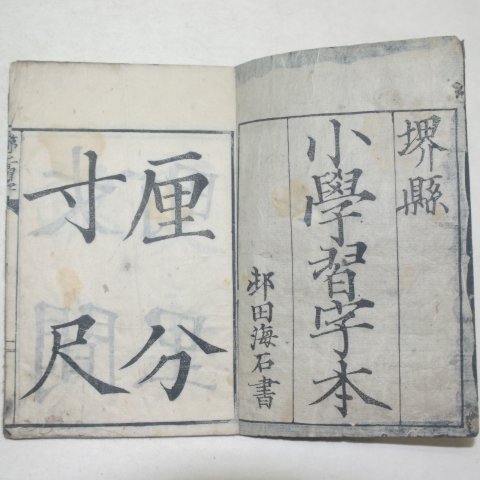 堺縣
小學習字本
邨田海石書
厘分
寸尺